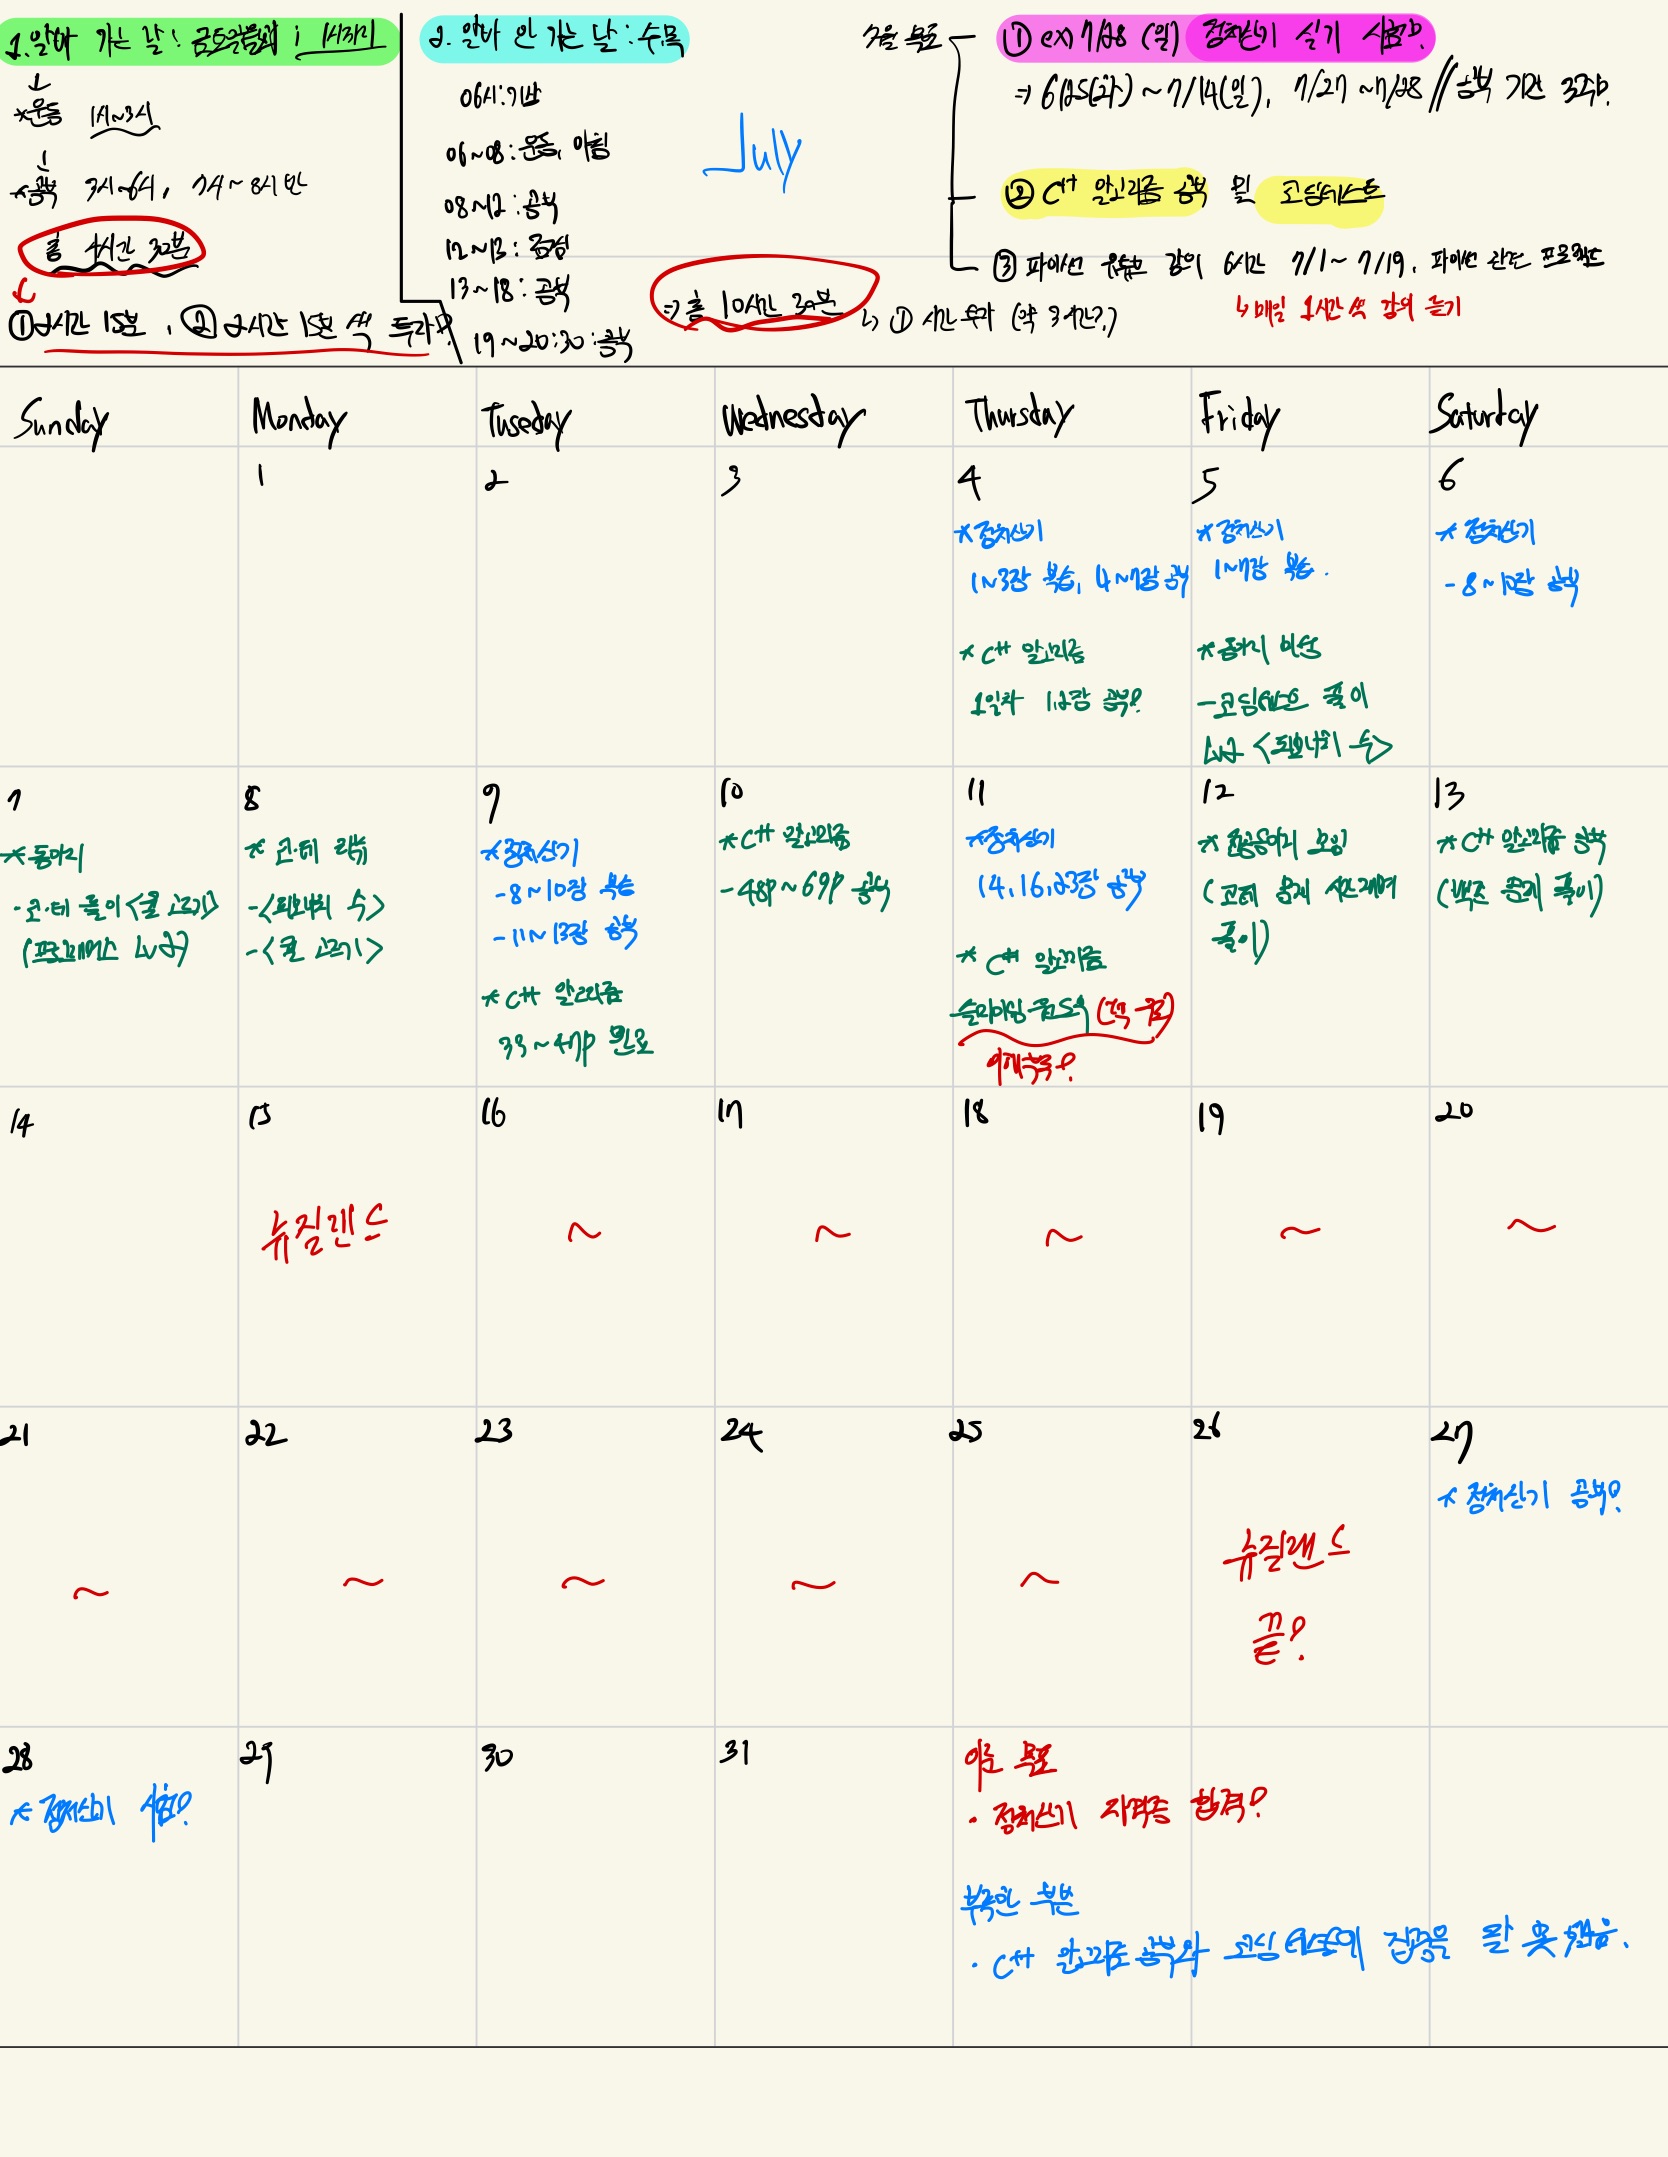 1. 알바 가는 날 : 금토일월화 ; 1시까지
↓
*운동 1시~3시
↓
*공부 3시~6시, 7시~8시 반
총 4시간 30분
①2시간 15분, ② 2시간 15분 씩 투자!
2. 알바 안 가는 날 : 수목
06시:기상
06~08:운동, 아침
08~12:공부
12~13:점심
13~18:공부
19~20:30:공부
⇒총 10시간 30분
July
7월 목표
① ex) 7/28 (일) 정처산기 실기 시험!
⇒ 6/25(화) ~ 7/14(일), 7/27 ~7/28 // 공부 기간 3주!
② C++ 알고리즘 공부 및 코딩테스트
↳ ① 시간 투자 (약 3시간?)
③ 파이썬 유튜브 강의 6시간 7/1~ 7/19, 파이썬 관련 프로젝트
↳ 매일 1시간 씩 강의 듣기
Sunday Monday Tuseday Wednesday Thursday Friday Saturday
1 2 3 4 5 6
*정처산기
1~3장 복습, 4~7장 공부
*C++ 알고리즘
1일차 1,2장 공부!
*정처산기
1~7장 복습.
*동아리
-코딩테스트 풀이
Lv2 <피보나치 수>
*정처산기
-8~10장 공부
7 8 9 10 11 12 13
*동아리
-코.테 풀이<귤 고르기>
(프로그래머스 Lv2)
*코.테 리뷰
-<피보나치 수>
-<귤 고르기>
*정처산기
-8~10장 복습
-11~13장 공부
*C++ 알고리즘
39~47p 완료
*C++ 알고리즘
-48p~69p 공부
*정처산기
14,16,23장 공부
*C++ 알고리즘
슬라이딩 윈도우
*전공동아리 모임
(코테 문제
풀이)
*C++ 알고리즘 공부
(백준 문제 풀이)
14 15 16 17 18 19 20
뉴질랜드 ~ ~ ~ ~ ~
21 22 23 24 25 26 27
~ ~ ~ ~ ~
뉴질랜드
끝!
*정처산기 공부!
28 29 30 31
*정처산기 시험!
이룬 목표
· 정처산기 자격증 합격!
부족한 부분
· C++ 알고리즘 공부와 코딩 테스트에 집중을 잘 못했음.